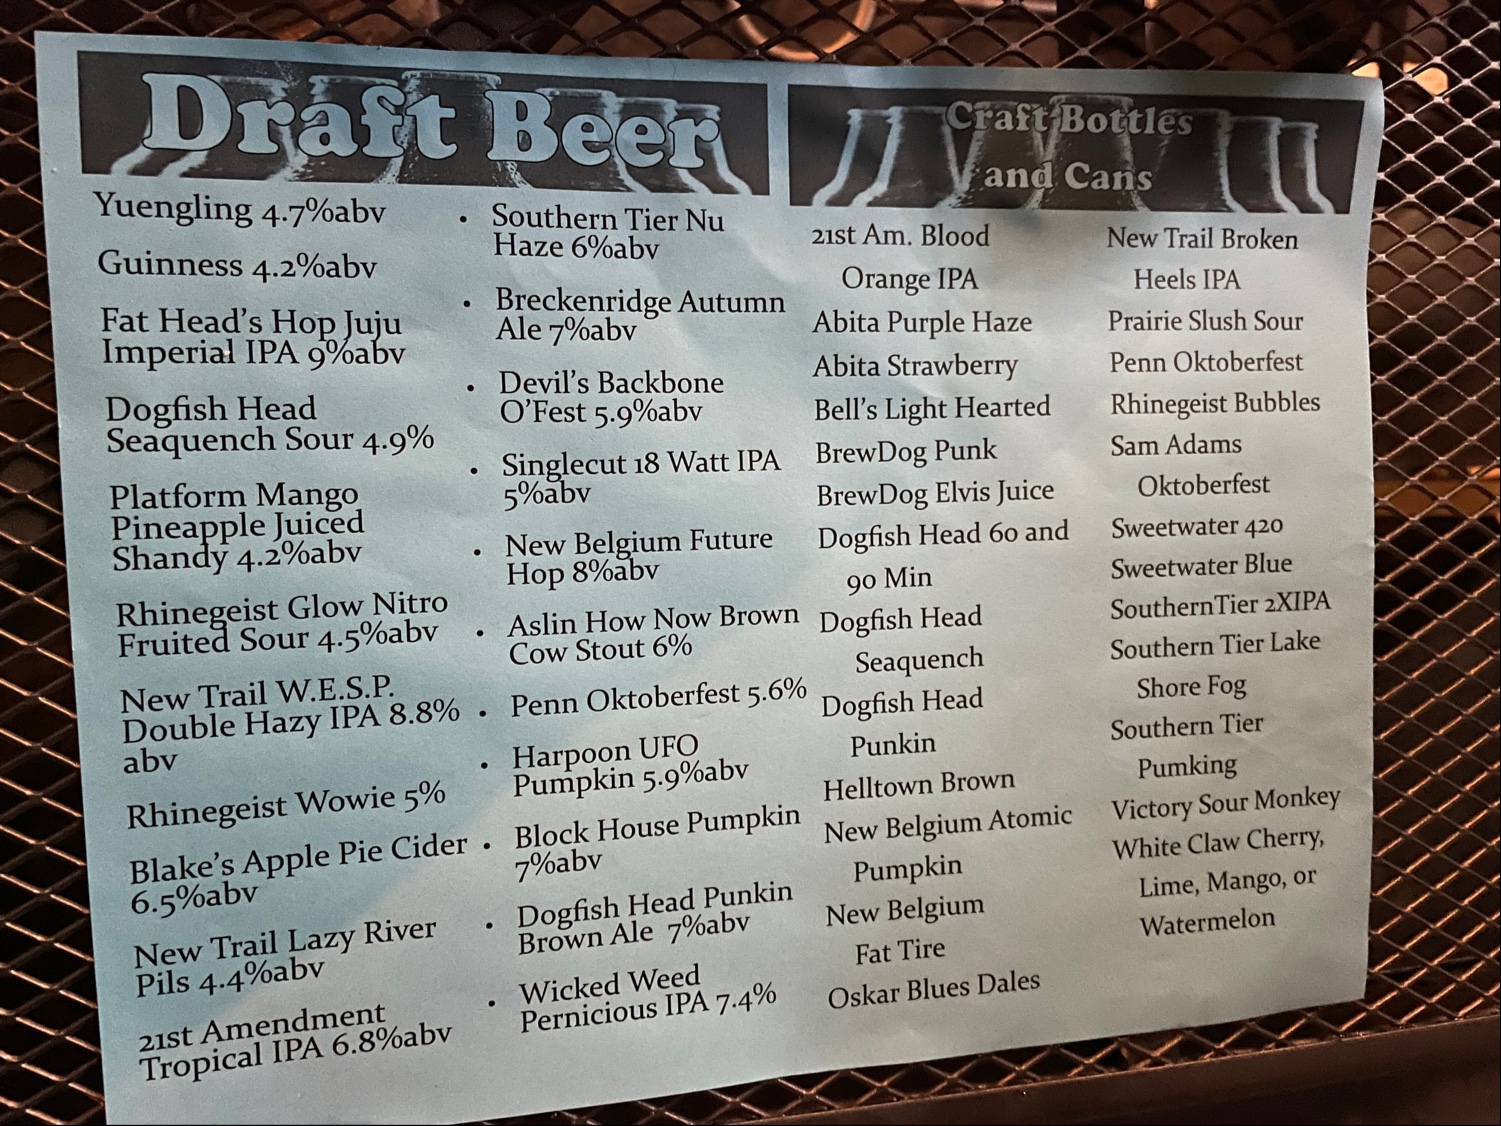 Draft Beer
Yuengling 4.7%abv
Guinness 4.2%abv
Fat Head's Hop Juju
Imperial IPA 9%abv
Dogfish Head
Seaquench Sour 4.9%
Platform Mango
Pineapple Juiced
Shandy 4.2%abv
Rhinegeist Glow Nitro
Fruited Sour 4.5%abv
New Trail W.E.S.P.
Double Hazy IPA 8.8%
abv
Rhinegeist Wowie 5%
Blake's Apple Pie Cider
6.5%abv
New Trail Lazy River
Pils 4.4%abv
21st Amendment
Tropical IPA 6.8%abv
• Southern Tier Nu
Haze 6%abv
• Breckenridge Autumn
Ale 7%abv
• Devil's Backbone
O'Fest 5.9%abv
• Singlecut 18 Watt IPA
5%abv
• New Belgium Future
Hop 8%abv
• Aslin How Now Brown
Cow Stout 6%
• Penn Oktoberfest 5.6%
• Harpoon UFO
Pumpkin 5.9%abv
• Block House Pumpkin
7%abv
• Dogfish Head Punkin
Brown Ale 7%abv
• Wicked Weed
Pernicious IPA 7.4%
Craft Bottles
and Cans
21st Am. Blood
Orange IPA
Abita Purple Haze
Abita Strawberry
Bell's Light Hearted
BrewDog Punk
BrewDog Elvis Juice
Dogfish Head 60 and
90 Min
Dogfish Head
Seaquench
Dogfish Head
Punkin
Helltown Brown
New Belgium Atomic
Pumpkin
New Belgium
Fat Tire
Oskar Blues Dales
New Trail Broken
Heels IPA
Prairie Slush Sour
Penn Oktoberfest
Rhinegeist Bubbles
Sam Adams
Oktoberfest
Sweetwater 420
Sweetwater Blue
SouthernTier 2XIPA
Southern Tier Lake
Shore Fog
Southern Tier
Pumking
Victory Sour Monkey
White Claw Cherry,
Lime, Mango, or
Watermelon